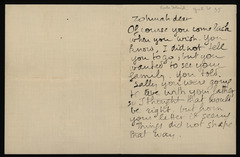 dear
Of course you come back
when you wish. You
know, I did not tell
you to go, but you
wanted to see your
family. You told
Sally you were going
to live with your father
so I thought that would
be right. but from
your letter it seems
things did not shape
that way.